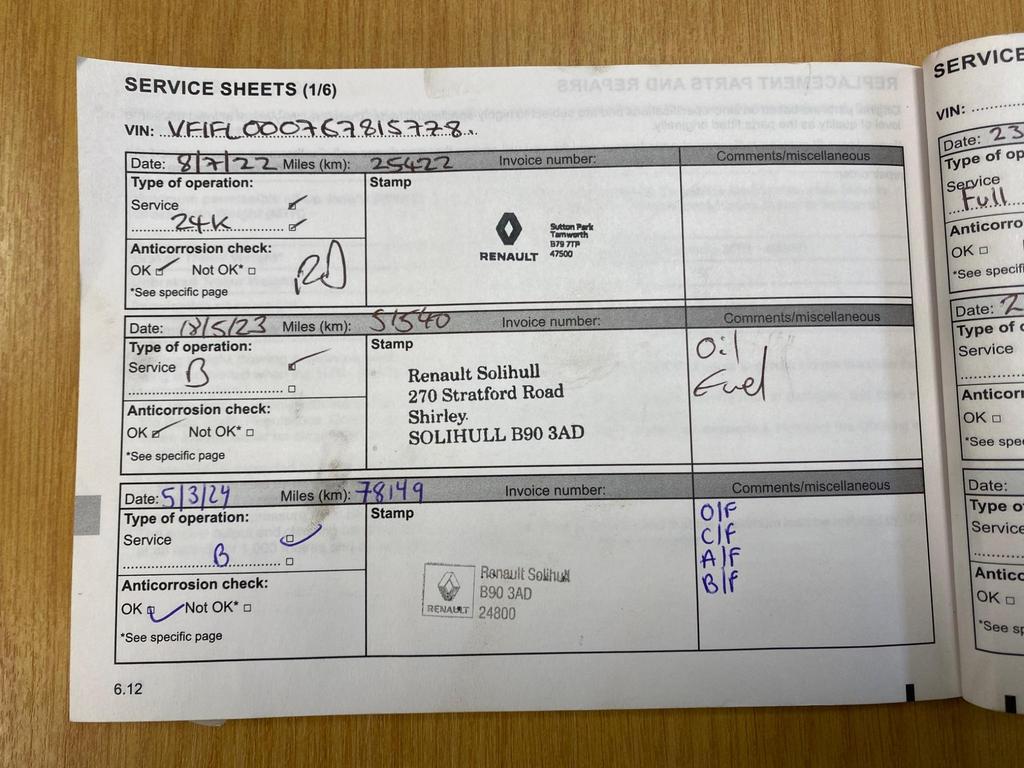 SERVICE SHEETS (1/6)
VIN: VF1FL000767815778
Date: 8/7/22 Miles (km): 25422 Invoice number: Comments/miscellaneous
Type of operation: Stamp
Service
24K
Anticorrosion check:
OK Not OK*
*See specific page
RENAULT
Sutton Park
Tamworth
B79 7TP
47500
Date: 18/5/23 Miles (km): 51540 Invoice number: Comments/miscellaneous
Type of operation: Stamp
Service B
Anticorrosion check:
OK Not OK*
*See specific page
Renault Solihull
270 Stratford Road
Shirley.
SOLIHULL B90 3AD
Oil
Fuel
Date: 5/3/24 Miles (km): 78149 Invoice number: Comments/miscellaneous
Type of operation: Stamp
Service
B
Anticorrosion check:
OK Not OK*
*See specific page
RENAULT
Renault Solihull
B90 3AD
24800
O/F
C/F
A/F
B/F
6.12
SERVICE
VIN:
Date: 23
Type of op
Service
Full
Anticorro
OK
*See specifi
Date: 2
Type of o
Service
Anticorr
OK
*See spe
Date:
Type o
Service
Antico
OK
*See sp